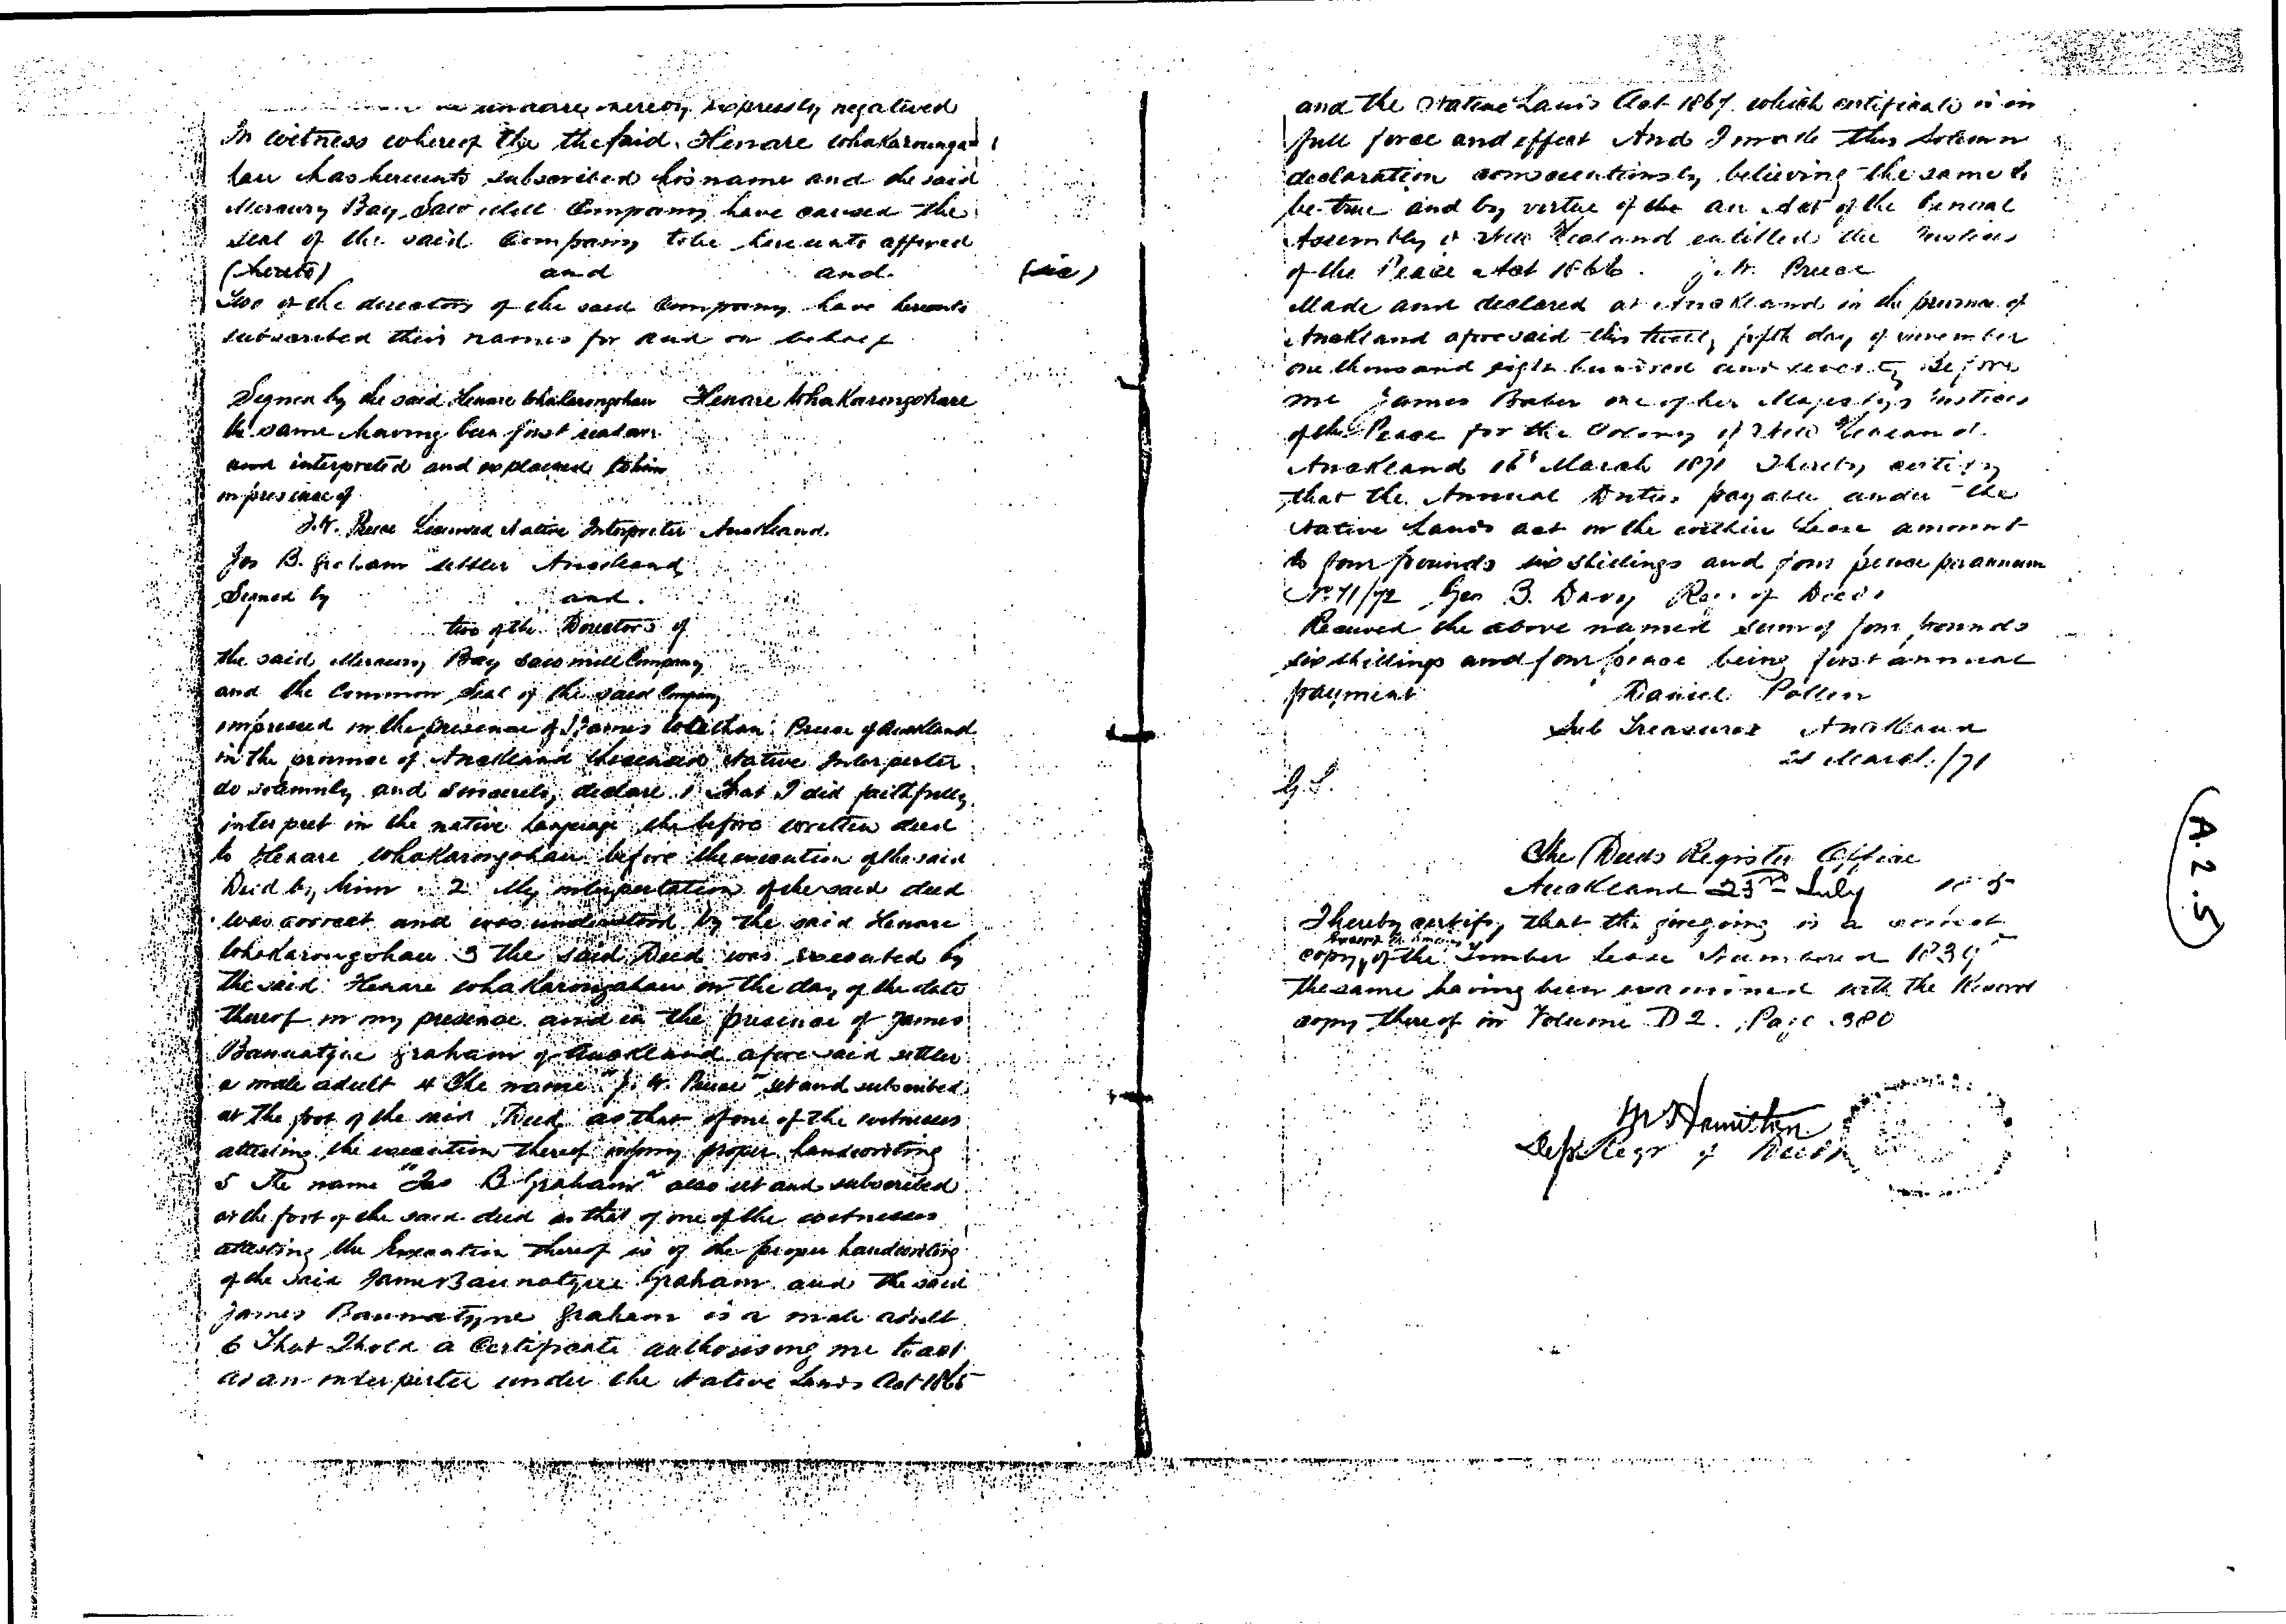 hereby expressly negatived
In witness whereof the the said Henare Whakaronga=
hau has hereunto subscribed his name and the said
Mercury Bay Saw Mill Company have caused the
seal of the said Company to be hereunto affixed
(hereto) and and (sic)
Two of the directors of the said Company have hereunto
subscribed their names for and on behalf
Signed by the said Henare Whakarongohau Henare Whakarongohare
the same having been first read over
and interpreted and explained to him
in presence of
J.W. Preece Licensed Native Interpreter Auckland
Jas B. Graham settler Auckland
Signed by and
two of the Directors of
the said Mercury Bay Saw mill Company
and the Common Seal of the said Company
impressed in the presence of I James Preece of Auckland
in the province of Auckland Licensed Native Interperter
do solemnly and sincerely declare 1 That I did faithfully
interpret in the native language the before written deed
to Henare Whakarongohau before the execution of the said
Deed by him 2 My interpertation of the said deed
was correct and was understood by the said Henare
Whakarongohau 3 the said Deed was executed by
the said Henare Whakarongohau on the day of the date
thereof in my presence and in the presence of James
Bannatyne Graham of Auckland aforesaid settler
a male adult 4 The name "J. W. Preece" set and subscribed
at the foot of the said Deed as that of one of the witnesses
attesting the execution thereof is of my proper handwriting
5 The name "Jas B Graham" also set and subscribed
at the foot of the said deed as that of one of the witnesses
attesting the Execution thereof is of the proper handwriting
of the said James Bannatyne Graham and the said
James Bannatyne Graham is a male adult
6 That I hold a Certificate authorising me to act
as an interperter under the Native Lands Act 1865
and the Native Lands Act 1867 which certificate is in
full force and effect And I make this solemn
declaration conscientiously believing the same to
be true and by virtue of the an Act of the General
Assembly of New Zealand entitled the Justices
of the Peace Act 1866. J. W. Preece
Made and declared at Auckland in the province of
Auckland aforesaid this twenty fifth day of november
one thousand eight hundred and seventy Before
me James Baber one of her Majesty's Justices
of the Peace for the Colony of New Zealand.
Auckland 16th March 1871 I hereby certify
that the Annual Duties payable under the
Native Lands act on the within Lease amount
to four pounds six shillings and four pence per annum
No 71/72 Geo B. Davy Reg. of Deeds
Received the above named sum of four pounds
six shillings and four pence being first annual
payment Daniel Pollen
Sub Treasurer Auckland
21 March /71
G.S.
The Deeds Register Office
Auckland 23rd July
I hereby certify that the foregoing is a correct
copy of the Timber Lease Numbered
the same having been examined with the Record
copy thereof in Volume D 2. Page 380
Hamilton
Dep Regr of Deeds
A.2.5